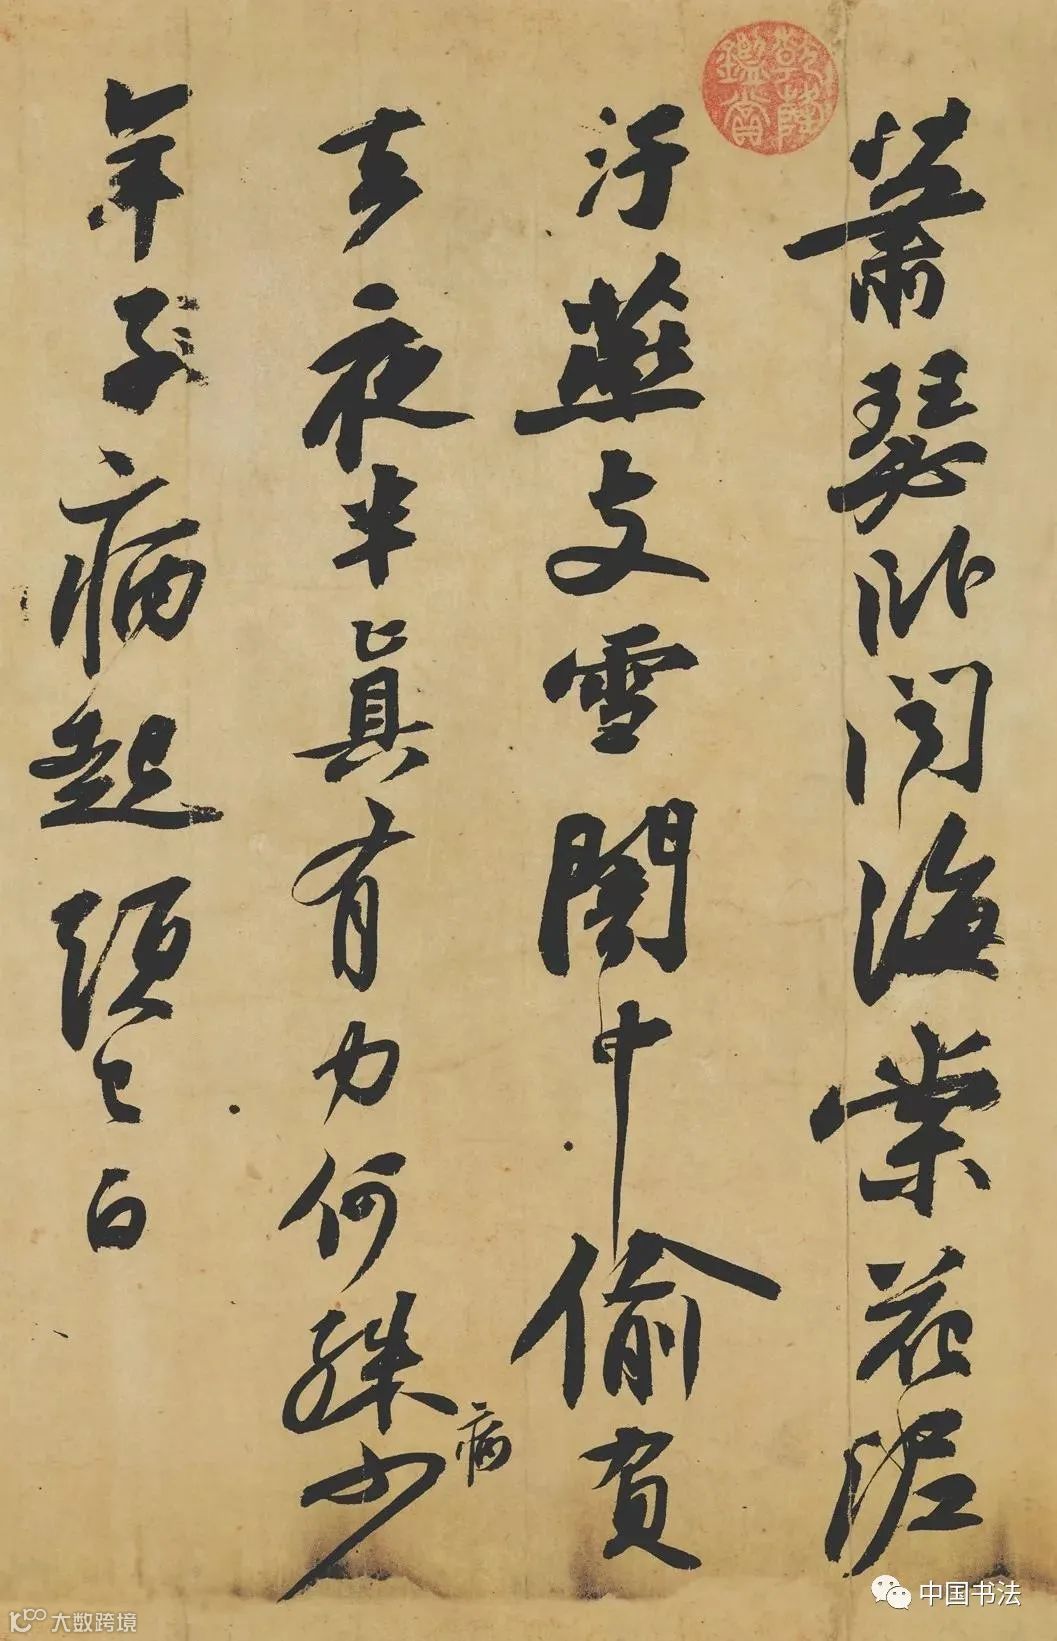 乾隆鑑賞
蕭瑟卧聞海棠花泥
汙燕支雪闇中偷負
去夜半眞有力何殊少
病
年子病起頭已白
中国书法
大数跨境